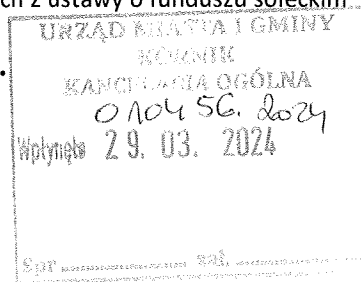 ch z ustawy o funduszu sołeckim
URZĄD MIASTA I GMINY
KÓRNIK
KANCELARIA OGÓLNA
010456.2024
Wpłynęło 29. 03. 2024
Spr ............ zał. ............